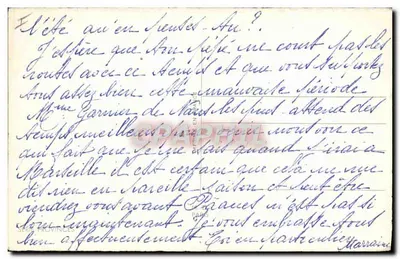 l'été qu'en penses-tu?.
J'espère que ton Pépé ne court pas les
routes avec ce temps et que vous supportez
tous assez bien cette mauvaise période
Mme Garnier de attend des
temps meilleurs pour nous voir ce
qui fait que je ne sais quand j'irai à
Marseille il est certain que cela ne me
dit rien en pareille saison et peut être
viendrez vous avant Pâques n'est pas si
loin maintenant. Je vous embrasse tous
bien affectueusement. Et en particulier
Marraine